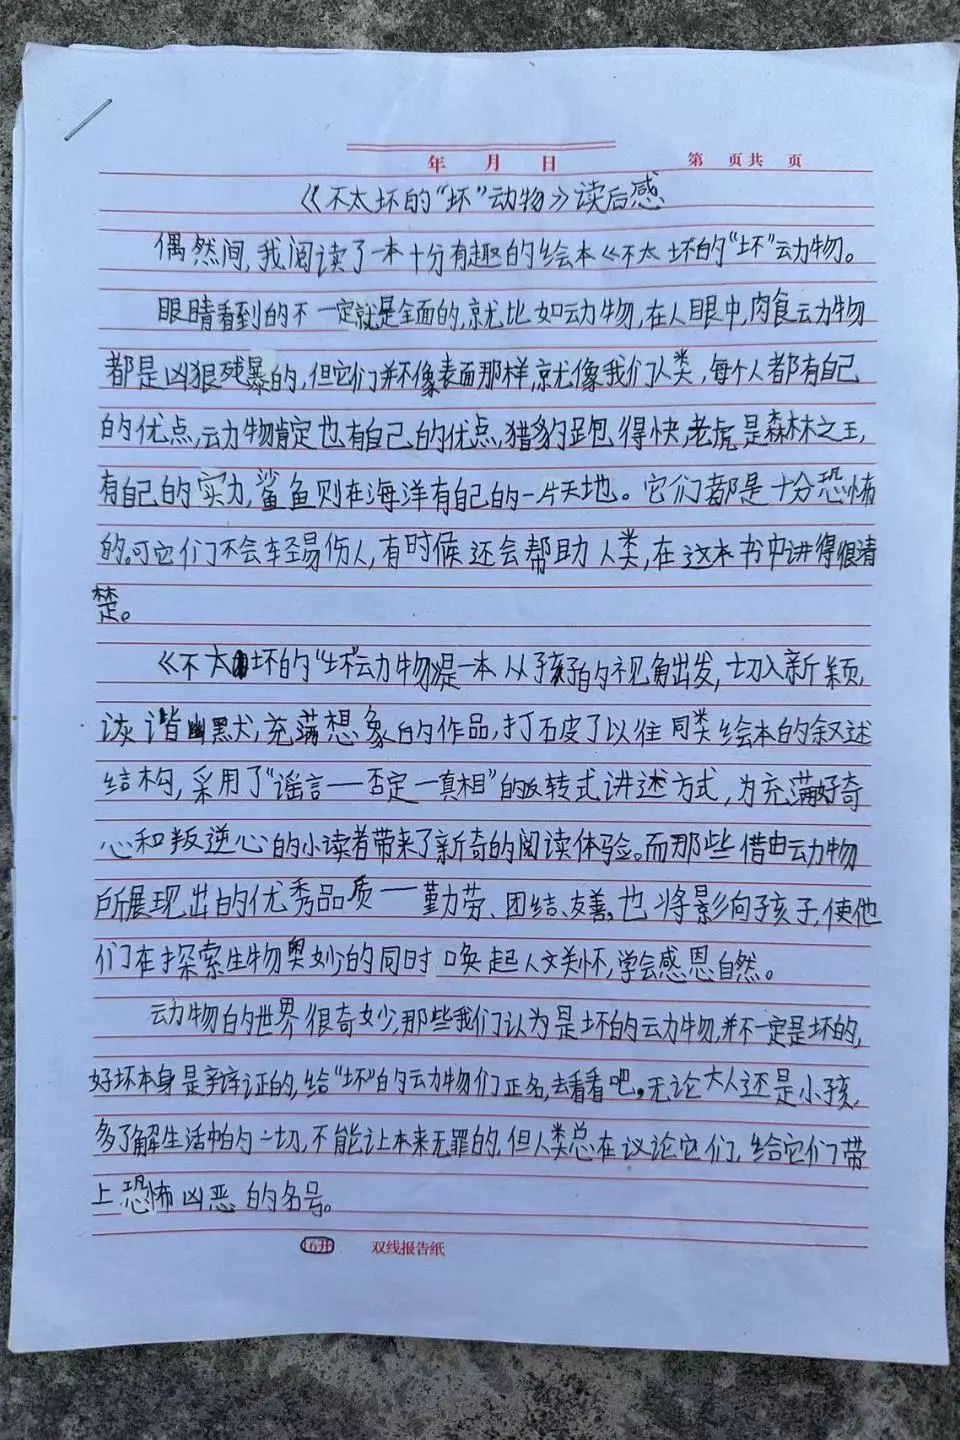 年 月 日
第 页共 页
《不太坏的“坏”动物》读后感
偶然间,我阅读了一本十分有趣的绘本《不太坏的“坏”动物。
眼睛看到的不一定就是全面的,就比如动物,在人眼中,肉食动物
都是凶狠残暴的,但它们并不像表面那样,就像我们人类,每个人都有自己
的优点,动物肯定也有自己的优点,猎豹跑得快,老虎是森林之王,
有自己的实力,鲨鱼则在海洋有自己的一片天地。它们都是十分恐怖
的。可它们不会轻易伤人,有时候还会帮助人类,在这本书中讲得很清
楚。
《不太坏的“坏”动物》是一本从孩子的视角出发,切入新颖,
诙谐幽默,充满想象的作品,打破了以往同类绘本的叙述
结构,采用了“谣言——否定—真相”的反转式讲述方式,为充满好奇
心和叛逆心的小读者带来了新奇的阅读体验。而那些借由动物
所展现出的优秀品质——勤劳、团结、友善,也将影向孩子,使他
们在探索生物奥妙的同时唤起人文关怀,学会感恩自然。
动物的世界很奇妙,那些我们认为是坏的动物,并不一定是坏的,
好坏本身是辩证的,给“坏”的动物们正名,去看看吧。无论大人还是小孩,
多了解生活中的一切,不能让本来无罪的,但人类总在议论它们,给它们带
上恐怖凶恶的名号。
16开 双线报告纸